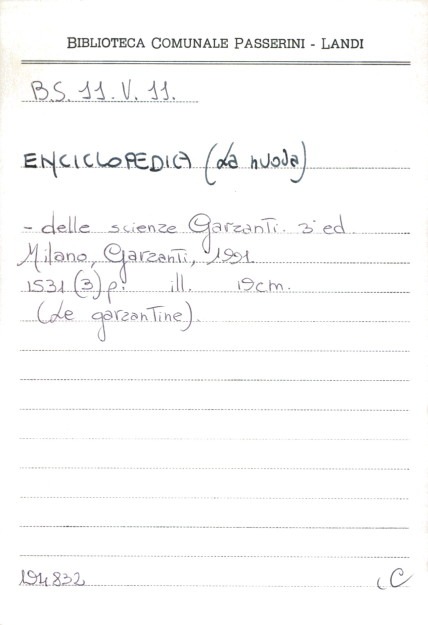 BIBLIOTECA COMUNALE PASSERINI - LANDI
B.S. 11. V. 11.
ENCICLOPEDIA (La nuova)
- delle scienze Garzanti. 3ª ed.
Milano, Garzanti, 1991.
1531 (3) p. ill. 19cm.
(Le garzantine).
194832
C